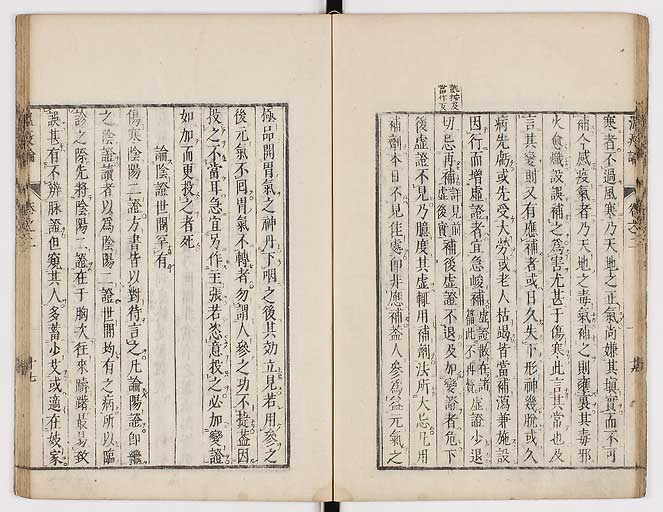 寒者不過風寒乃天地之正氣尚嫌其填實而不可
補今感疫氣者乃天地之毒氣補之則壅裏其毒邪
火愈熾誤補之為害尤甚于傷寒此言其常也及
言其變則又有應補者或日久失下形神幾脫或久
病先虧或先受大勞或老人枯竭皆當補瀉兼施設
因行而增虛證者宜急峻補虛證散在諸篇此不再贅虛證少退
切忌再補詳見前虛後實補後虛證不退及加變證者危下
後虛證不見乃臆度其虛輒用補劑法所大忌凡用
補劑本日不見佳處即非應補蓋人參為益元氣之
極品開胃氣之神丹下咽之後其効立見若用參之
後元氣不回胃氣不轉者勿謂人參之功不捷蓋因
投之不當耳急宜另作主張若恣意投之必加變證
如加而更投之者死
論陰證世間罕有
傷寒陰陽二證方書皆以對待言之凡論陽證即繼
之陰證讀者以為陰陽二證世間均有之病所以臨
診之際先將陰陽二證在于胸次往來躊躇最易致
誤甚有不辨脉證但窺其人多蓄少艾或適在妓家
十七